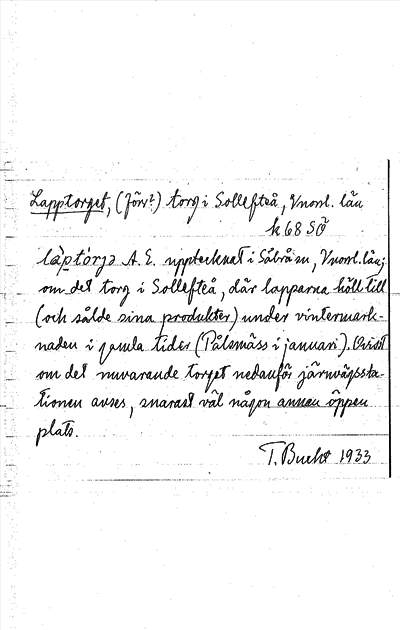 Lapptorget, (förr?) torg i Sollefteå, Vnorrl. län
k 68 SÖ
làptórjə A. E. upptecknat i Säbrå sn, Vnorrl. län;
om det torg i Sollefteå, där lapparna höll till
(och sålde sina produkter) under vintermark-
naden i gamla tider (Pålsmäss i januari). Ovisst
om det nuvarande torget nedanför järnvägssta-
tionen avses, snarast väl någon annan öppen
plats.
T. Bucht 1933